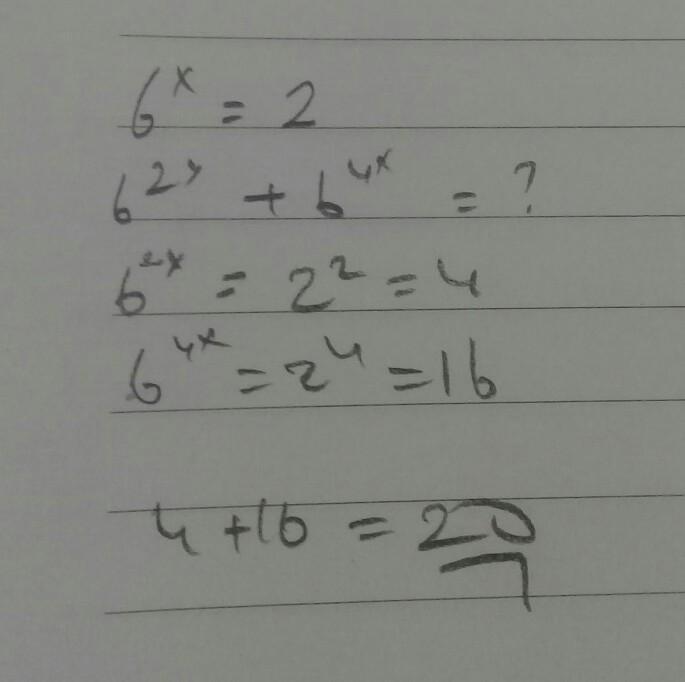 6^x = 2
6^{2x} + 6^{4x} = ?
6^{2x} = 2^2 = 4
6^{4x} = 2^4 = 16
4 + 16 = 20